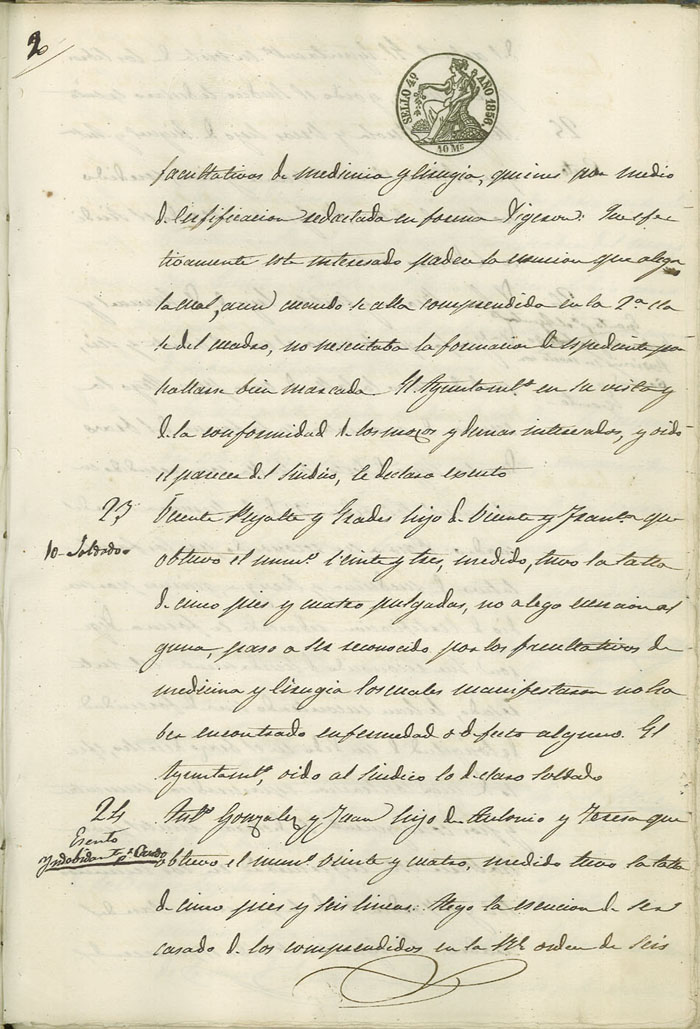 2
SELLO 4º AÑO 1858.
40 Ms
facultativos de medicina y Cirugia, quienes por medio
de Certificacion redactada en forma digeron: Que efec
tivamente este interesado padece la esencion que alega
la cual, aun cuando se alla comprendida en la 2ª cla
se del cuadro, no necesitaba la formacion de espediente por
hallarse bien marcada El Ayuntamtº en su vista y
de la conformidad de los mozos y demas interesados, y oido
el parecer del Sindico, le declaro esento
23 Vicente y Grades hijo de Vicente y Franca que
10 - Soldado
obtuvo el numº veinte y tres, medido, tuvo la talla
de cinco pies y cuatro pulgadas, no alego esencion al
guna, paso a ser reconocido por los facultativos de
medicina y Cirugia los cuales manifestaron no ha
ber encontrado enfermedad o defecto alguno. El
Ayuntamtº, oido al Sindico lo declaro Soldado
24 Antº Gonzalez y Juan hijo de Antonio y Teresa que
Esento
obtuvo el numº veinte y cuatro, medido tuvo la talla
de cinco pies y seis lineas: Alego la esencion de ser
casado de los comprendidos en la Rl orden de seis